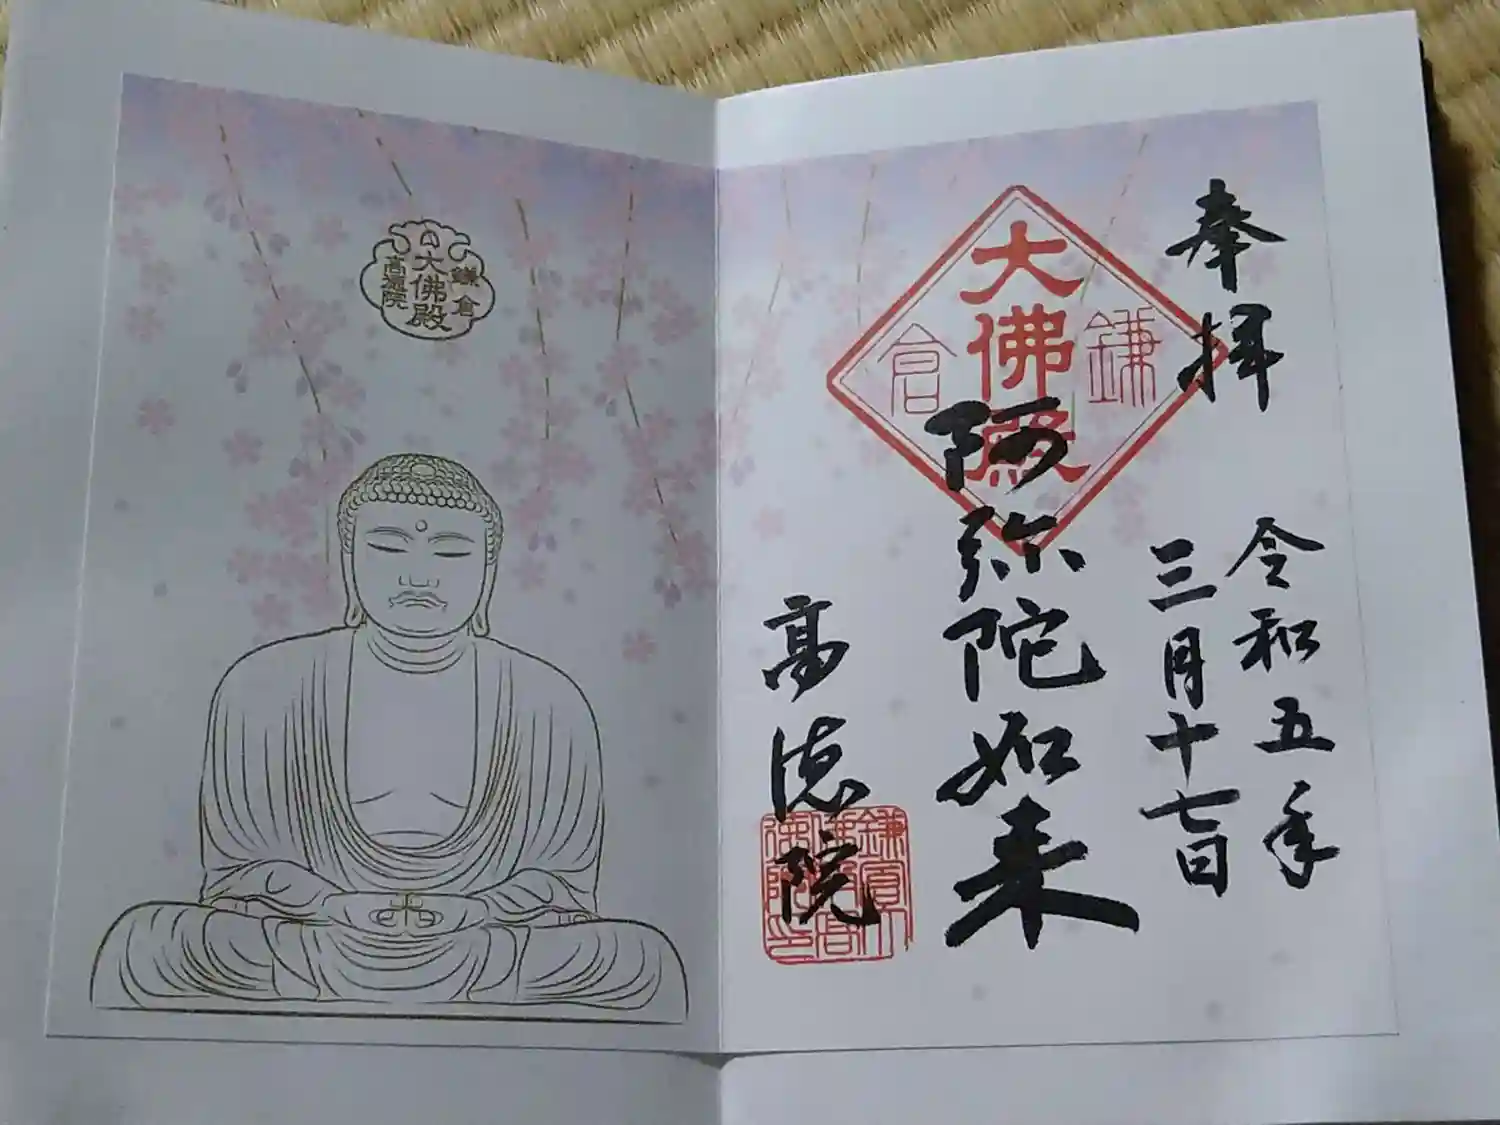 奉拝
令和五年
三月十七日
鎌倉
大佛殿
阿弥陀如来
高徳院
鎌倉
大佛殿
高徳院